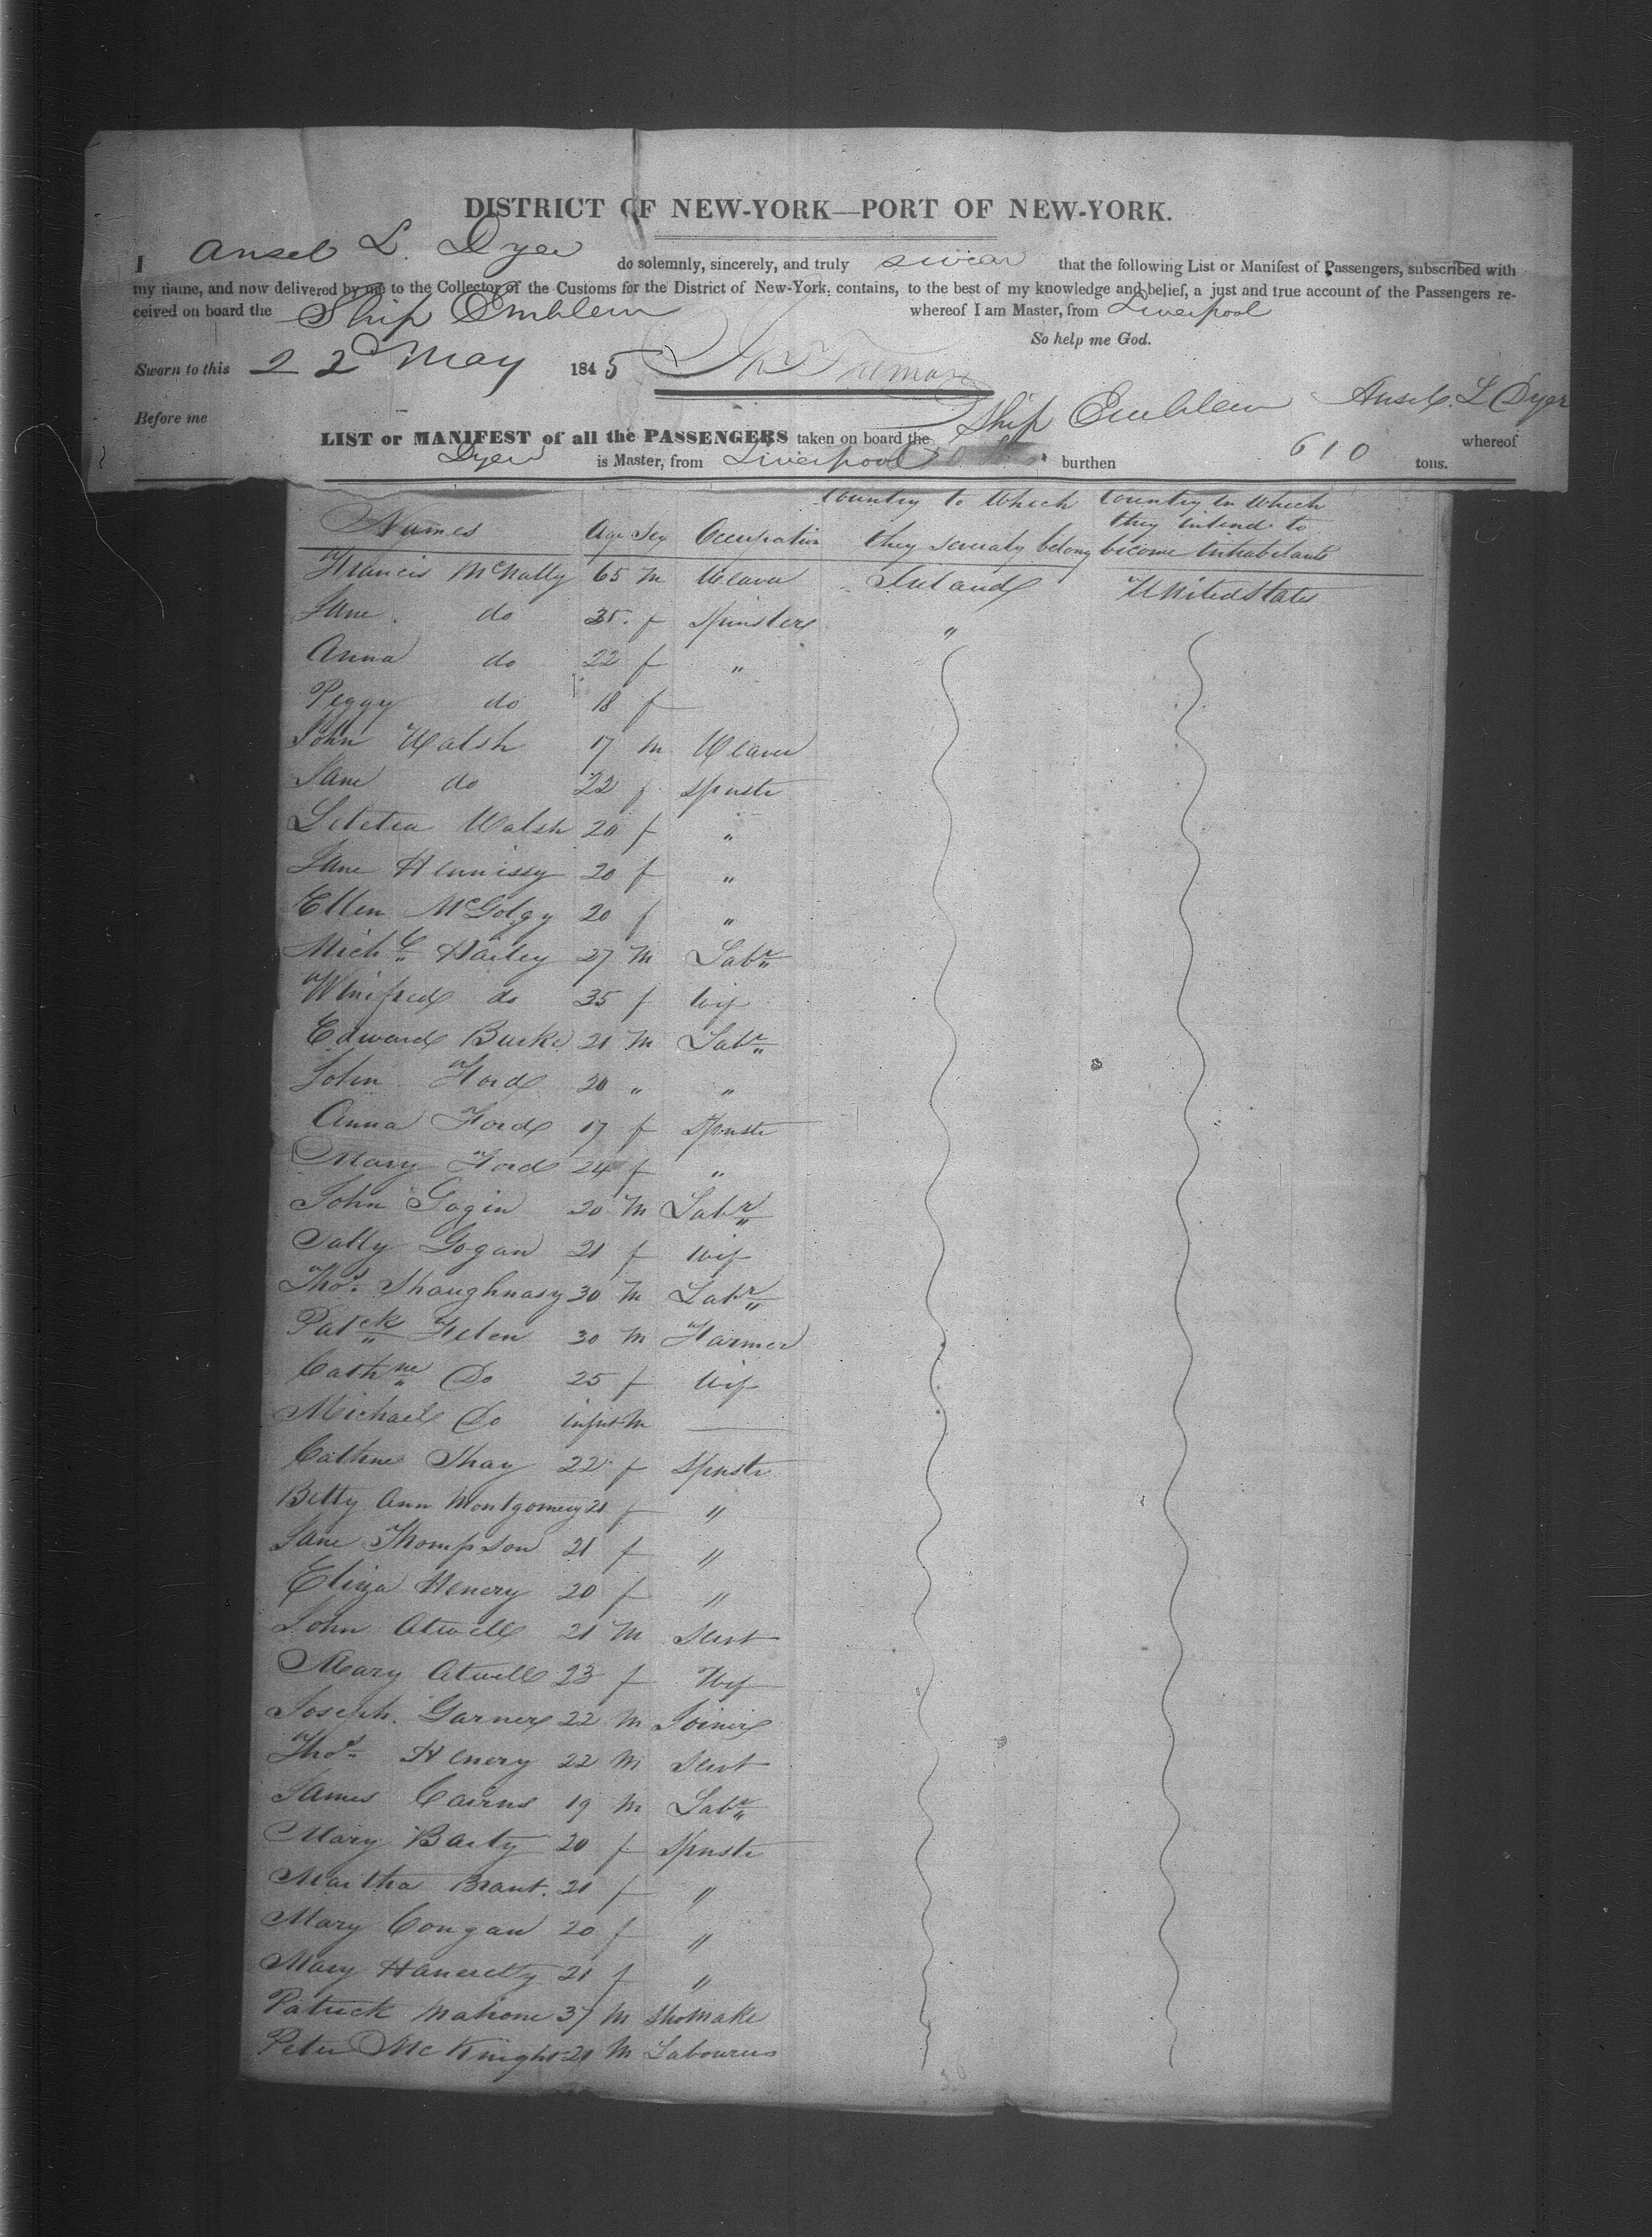 DISTRICT OF NEW-YORK—PORT OF NEW-YORK.
I Ansel L. Dyer do solemnly, sincerely, and truly swear that the following List or Manifest of Passengers, subscribed with
my name, and now delivered by me to the Collector of the Customs for the District of New-York, contains, to the best of my knowledge and belief, a just and true account of the Passengers re-
ceived on board the Ship Emblem whereof I am Master, from Liverpool
So help me God.
Sworn to this 22 May 1845
Before me Ansel. L Dyer
LIST or MANIFEST of all the PASSENGERS taken on board the Ship Emblem whereof
Dyer is Master, from Liverpool burthen 610 tons.
Names Age Sex Occupation Country to Which they severaly belong Country in Which they intend to become Inhabitants
Francis McNally 65 M Weaver Ireland United States
Jane do 35 f Spinster "
Anna do 22 f "
Peggy do 18 f
John Walsh 17 M Weaver
Jane do 22 f Spnstr
Letetia Walsh 20 f "
Jane Hennissy 20 f "
Ellen McGolgy 20 f "
Michl Hailey 27 M Labr
Winifred do 35 f Wif
Edward Burke 21 M Labr
John Ford 20 " "
Anna Ford 17 f Spnstr
Mary Ford 24 f "
John Gogin 20 M Labr
Sally Gogan 21 f Wif
Thos Shaughnasy 30 M Labr
Patck Felen 30 M Farmer
Cathne Do 25 f Wif
Michael Do infnt M —
Cathne Shay 22 f Spnstr
Betty Ann Montgomery 21 f "
Jane Thompson 21 f "
Eliza Henery 20 f "
John Atwell 21 M Servt
Mary Atwell 23 f Wif
Joseph Garner 22 M Joiner
Thos Henery 22 M Servt
James Cairns 19 M Labr
Mary Baity 20 f Spnstr
Martha Brant. 21 f "
Mary Congan 20 f "
Mary Haneretty 21 f "
Patrick Mahone 37 M Shomake
Peter McKnight 21 M Labourers